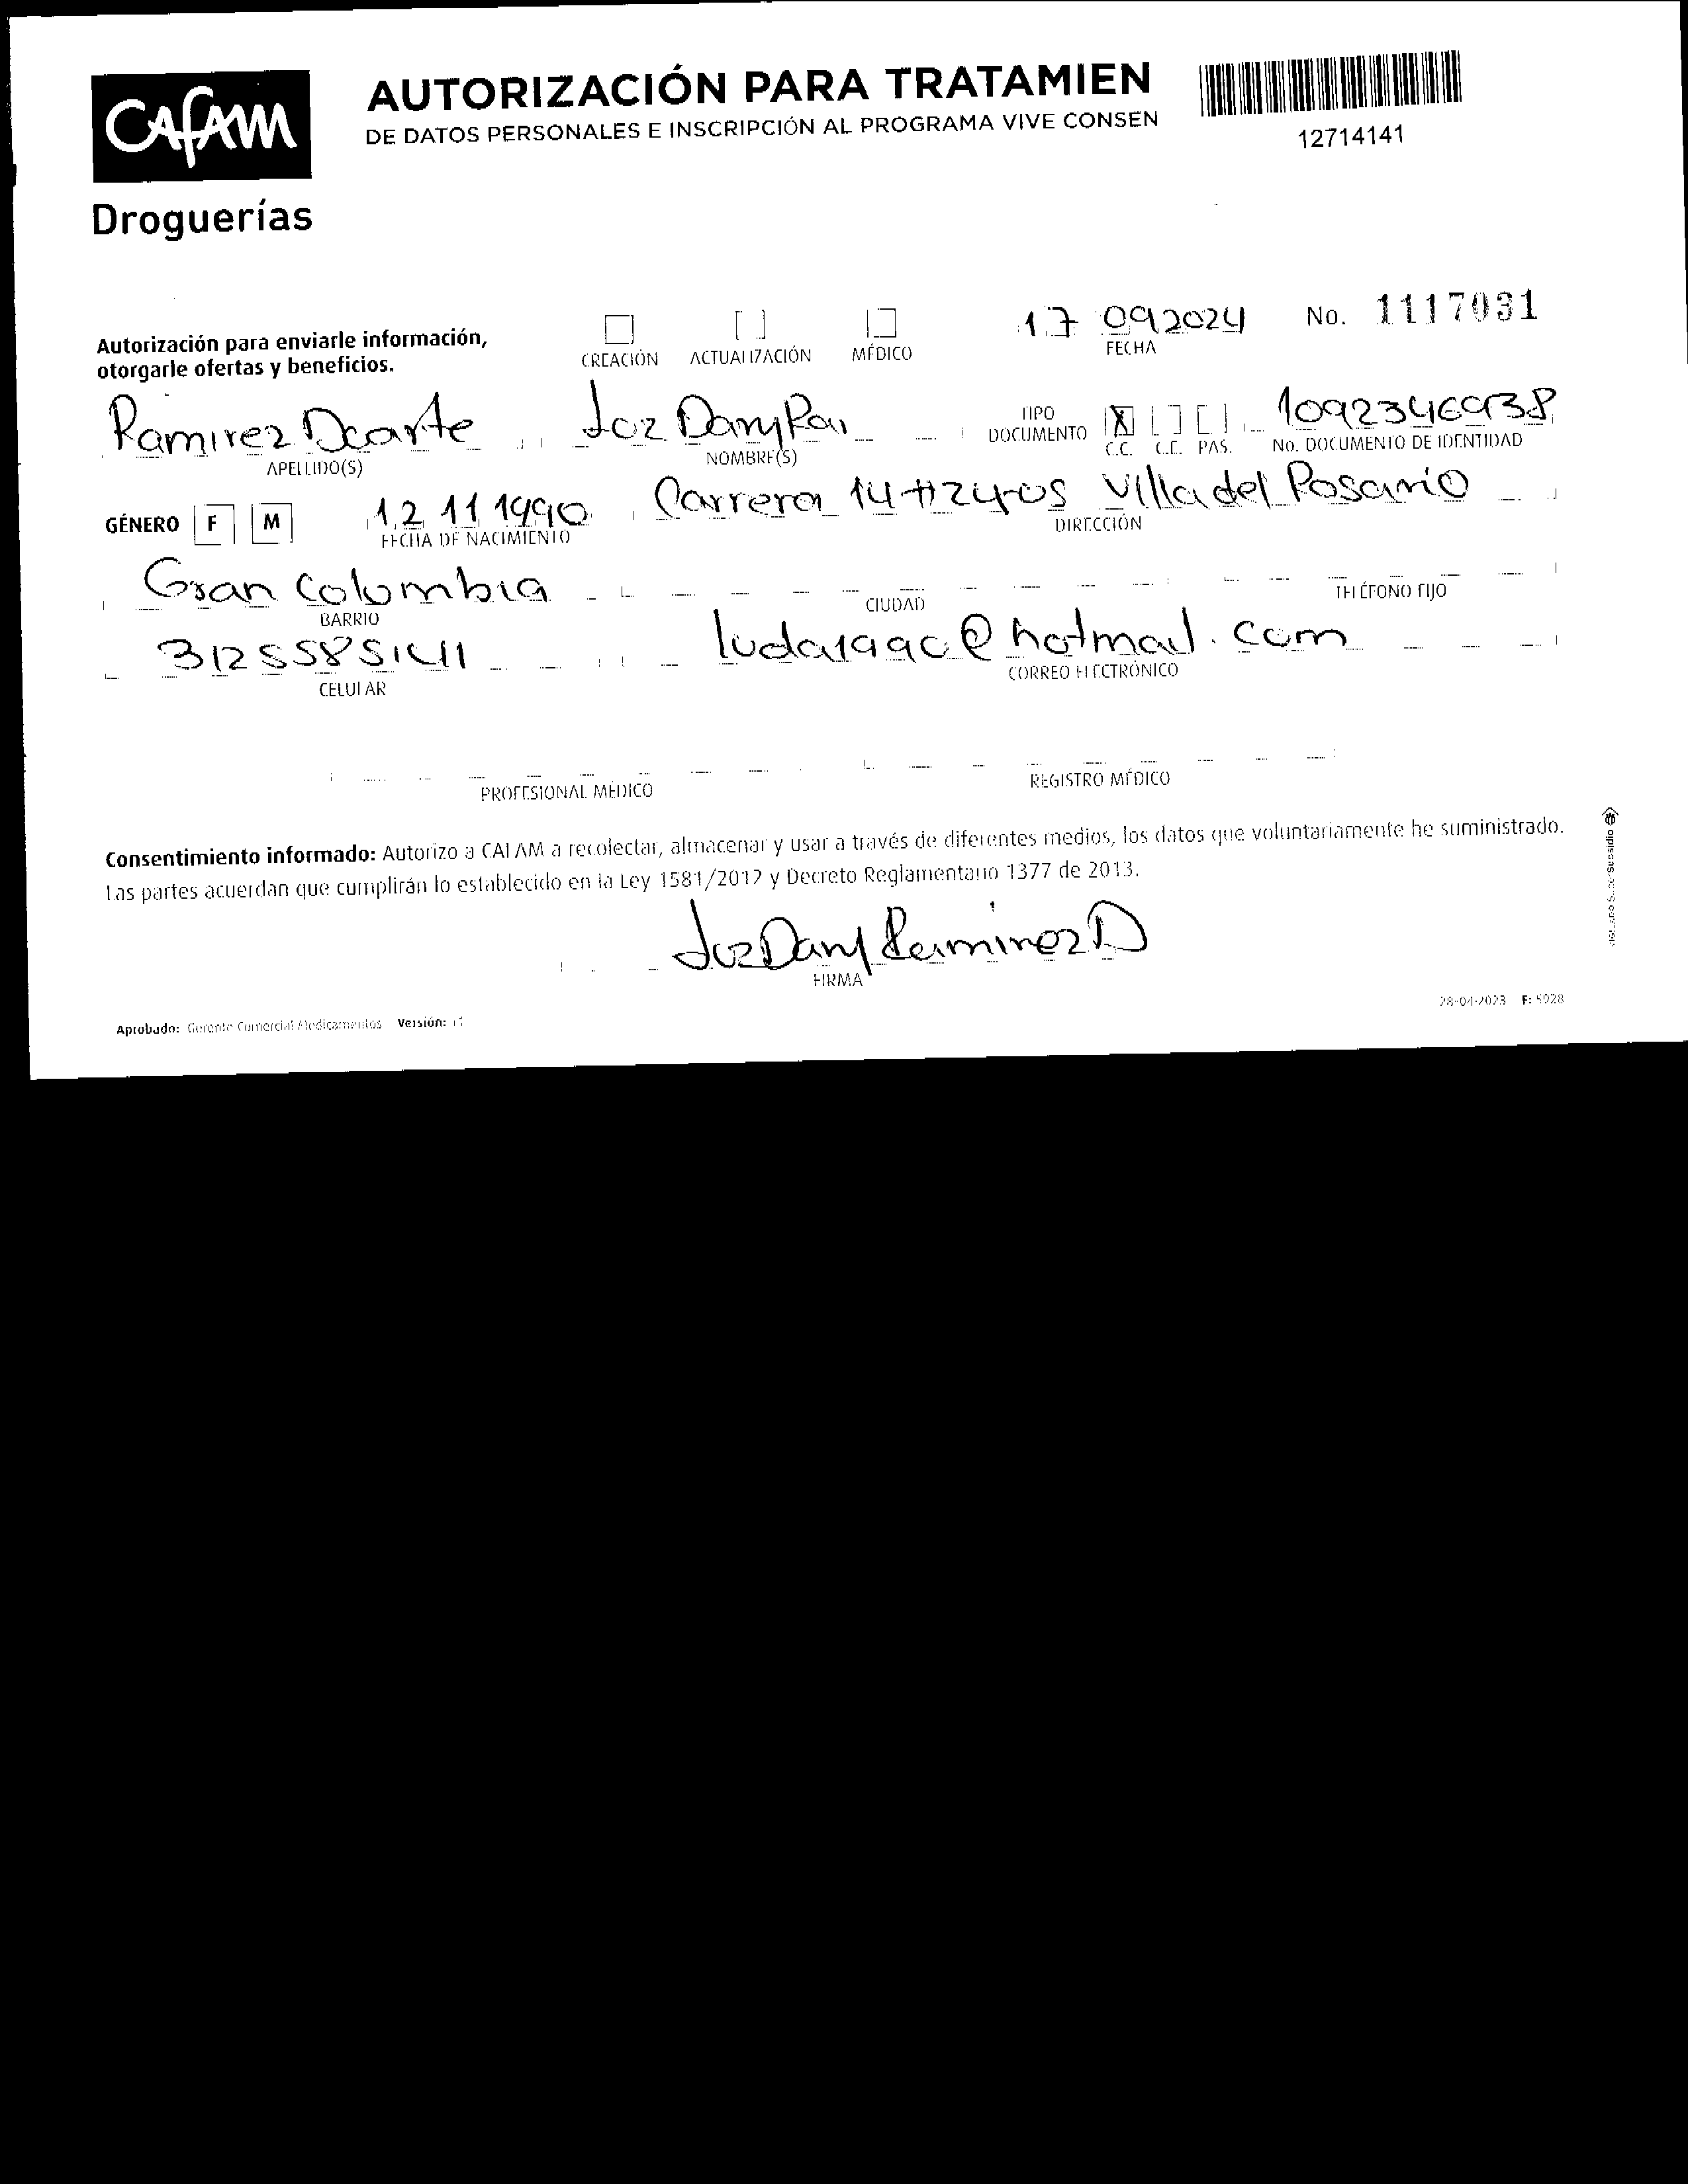 CAFAM
Droguerías
AUTORIZACIÓN PARA TRATAMIEN
DE DATOS PERSONALES E INSCRIPCIÓN AL PROGRAMA VIVE CONSEN
12714141
Autorización para enviarle información,
otorgarle ofertas y beneficios.
CREACIÓN ACTUALIZACIÓN MÉDICO
17 09 2024
FECHA
No. 1117031
Ramirez Duarte Luz Dany Rai
APELLIDO(S) NOMBRE(S)
TIPO
DOCUMENTO X
C.C. C.E. PAS.
1092346938
No. DOCUMENTO DE IDENTIDAD
GÉNERO F M
12 11 1990 Carrera 14 #24-05 Villa del Rosario
FECHA DE NACIMIENTO DIRECCIÓN
Gran Colombia
BARRIO CIUDAD TELÉFONO FIJO
luda1990@hotmail.com
CELULAR CORREO ELECTRÓNICO
PROFESIONAL MÉDICO REGISTRO MÉDICO
Consentimiento informado: Autorizo a CAFAM a recolectar, almacenar y usar a través de diferentes medios, los datos que voluntariamente he suministrado.
Las partes acuerdan que cumplirán lo establecido en la Ley 1581/2012 y Decreto Reglamentario 1377 de 2013.
Luz Dany Ramirez D
FIRMA
28-04-2023 F: 5928
Aprobado: Gerente Comercial Medicamentos Versión: